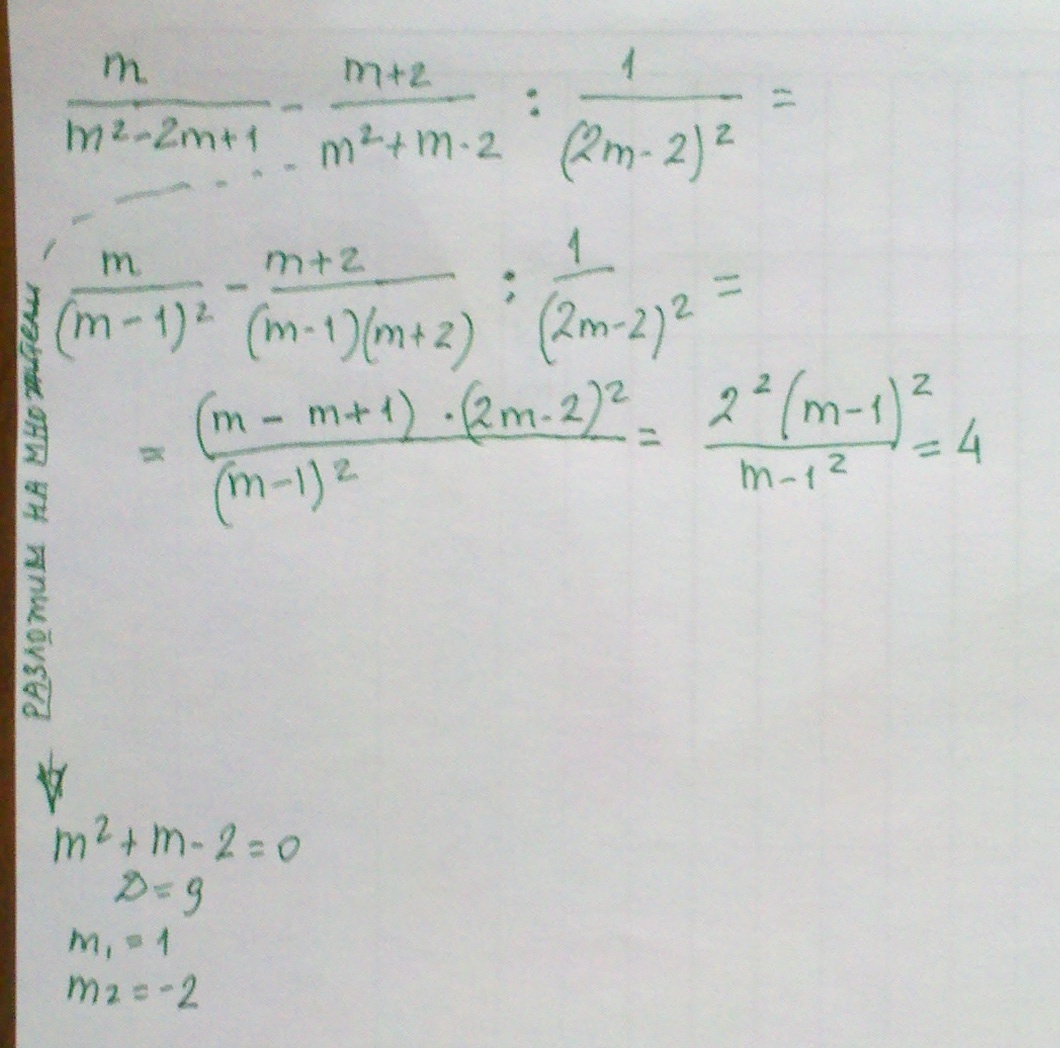 m/(m²-2m+1) - (m+2)/(m²+m-2) : 1/(2m-2)² =
m/(m-1)² - (m+2)/((m-1)(m+2)) : 1/(2m-2)² =
= ((m-m+1)·(2m-2)²)/(m-1)² = (2²(m-1)²)/(m-1²) = 4
РАЗЛОЖИМ НА МНОЖИТЕЛИ
m²+m-2=0
D=9
m₁=1
m₂=-2